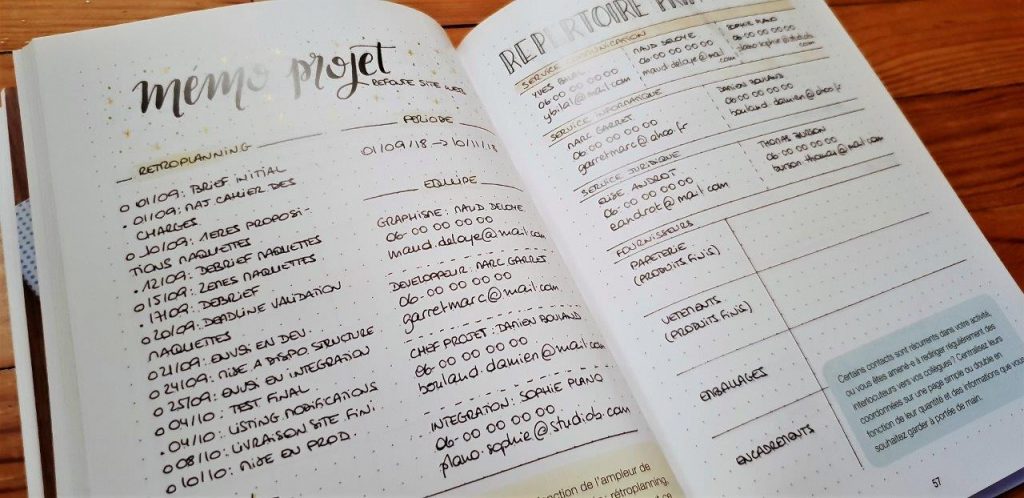 mémo projet
REFONTE SITE WEB
RETROPLANNING
01/09 : BRIEF INITIAL
01/09 : MAJ CAHIER DES
CHARGES
10/09 : 1ERES PROPOSI-
TIONS MAQUETTES
12/09 : DEBRIEF MAQUETTES
15/09 : 2EMES MAQUETTES
17/09 : DEBRIEF
20/09 : DEADLINE VALIDATION
MAQUETTES
21/09 : ENVOI EN DEV.
24/09 : MISE A DISPO. STRUCTURE
25/09 : ENVOI EN INTEGRATION
04/10 : TEST FINAL
04/10 : LISTING MODIFICATIONS
08/10 : LIVRAISON SITE FINI.
10/10 : MISE EN PROD.
PERIODE
01/09/18 → 10/11/18
EQUIPE
GRAPHISME : MAUD DELOYE
06 00 00 00 00
maud.deloye@mail.com
DEVELOPPEUR : MARC GARRET
06 00 00 00 00
garretmarc@mail.com
CHEF PROJET : DAMIEN BOULAND
06 00 00 00 00
bouland.damien@mail.com
INTEGRATION : SOPHIE PLANO
06 00 00 00 00
plano.sophie@studiob.com
fonction de l'ampleur de
rétroplanning,
REPERTOIRE
SERVICE COMMUNICATION
YVES BILAL
06 00 00 00 00
ybilal@mail.com
MAUD DELOYE
06 00 00 00 00
maud.deloye@mail
.com
SOPHIE PLANO
06 00 00 00 00
plano.sophie@studiob.
com
SERVICE INFORMATIQUE
MARC GARRET
06 00 00 00 00
garretmarc@ahoo.fr
DAMIEN BOULAND
06 00 00 00 00
bouland.damien@ahoo.fr
SERVICE JURIDIQUE
ELISE ANDROT
06 00 00 00 00
eandrot@mail.com
THOMAS BURSON
06 00 00 00 00
burson.thomas@mail.com
FOURNISSEURS
PAPETERIE
(PRODUITS FINIS)
VETEMENTS
(PRODUITS FINIS)
EMBALLAGES
ENCADREMENTS
Certains contacts sont récurrents dans votre activité,
ou vous êtes amené·e à rediriger régulièrement des
interlocuteurs vers vos collègues ? Centralisez leurs
coordonnées sur une page simple ou double en
fonction de leur quantité et des informations que vous
souhaitez garder à portée de main.
57